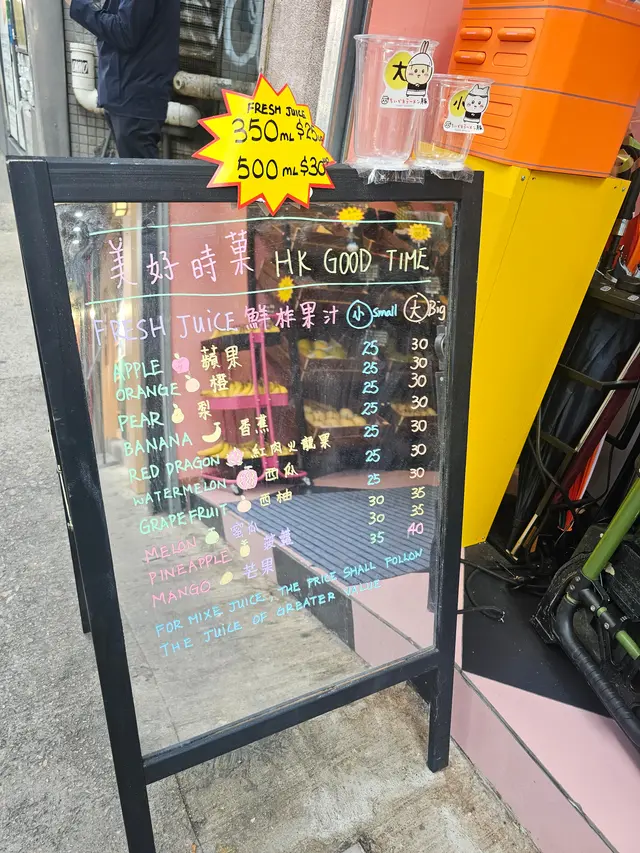 FRESH JUICE
350ML $25
500ML $30
大
ちいかわラーメン豚
小
ちいかわラーメン豚
美好時菓 HK GOOD TIME
FRESH JUICE 鮮榨果汁 小 Small 大 Big
APPLE 蘋果 25 30
ORANGE 橙 25 30
PEAR 梨 25 30
BANANA 香蕉 25 30
RED DRAGON 紅肉火龍果 25 30
WATERMELON 西瓜 25 30
GRAPEFRUIT 西柚 25 30
MELON 蜜瓜 30 35
PINEAPPLE 菠蘿 30 35
MANGO 芒果 35 40
FOR MIXE JUICE, THE PRICE SHALL FOLLON
THE JUICE OF GREATER VALUE